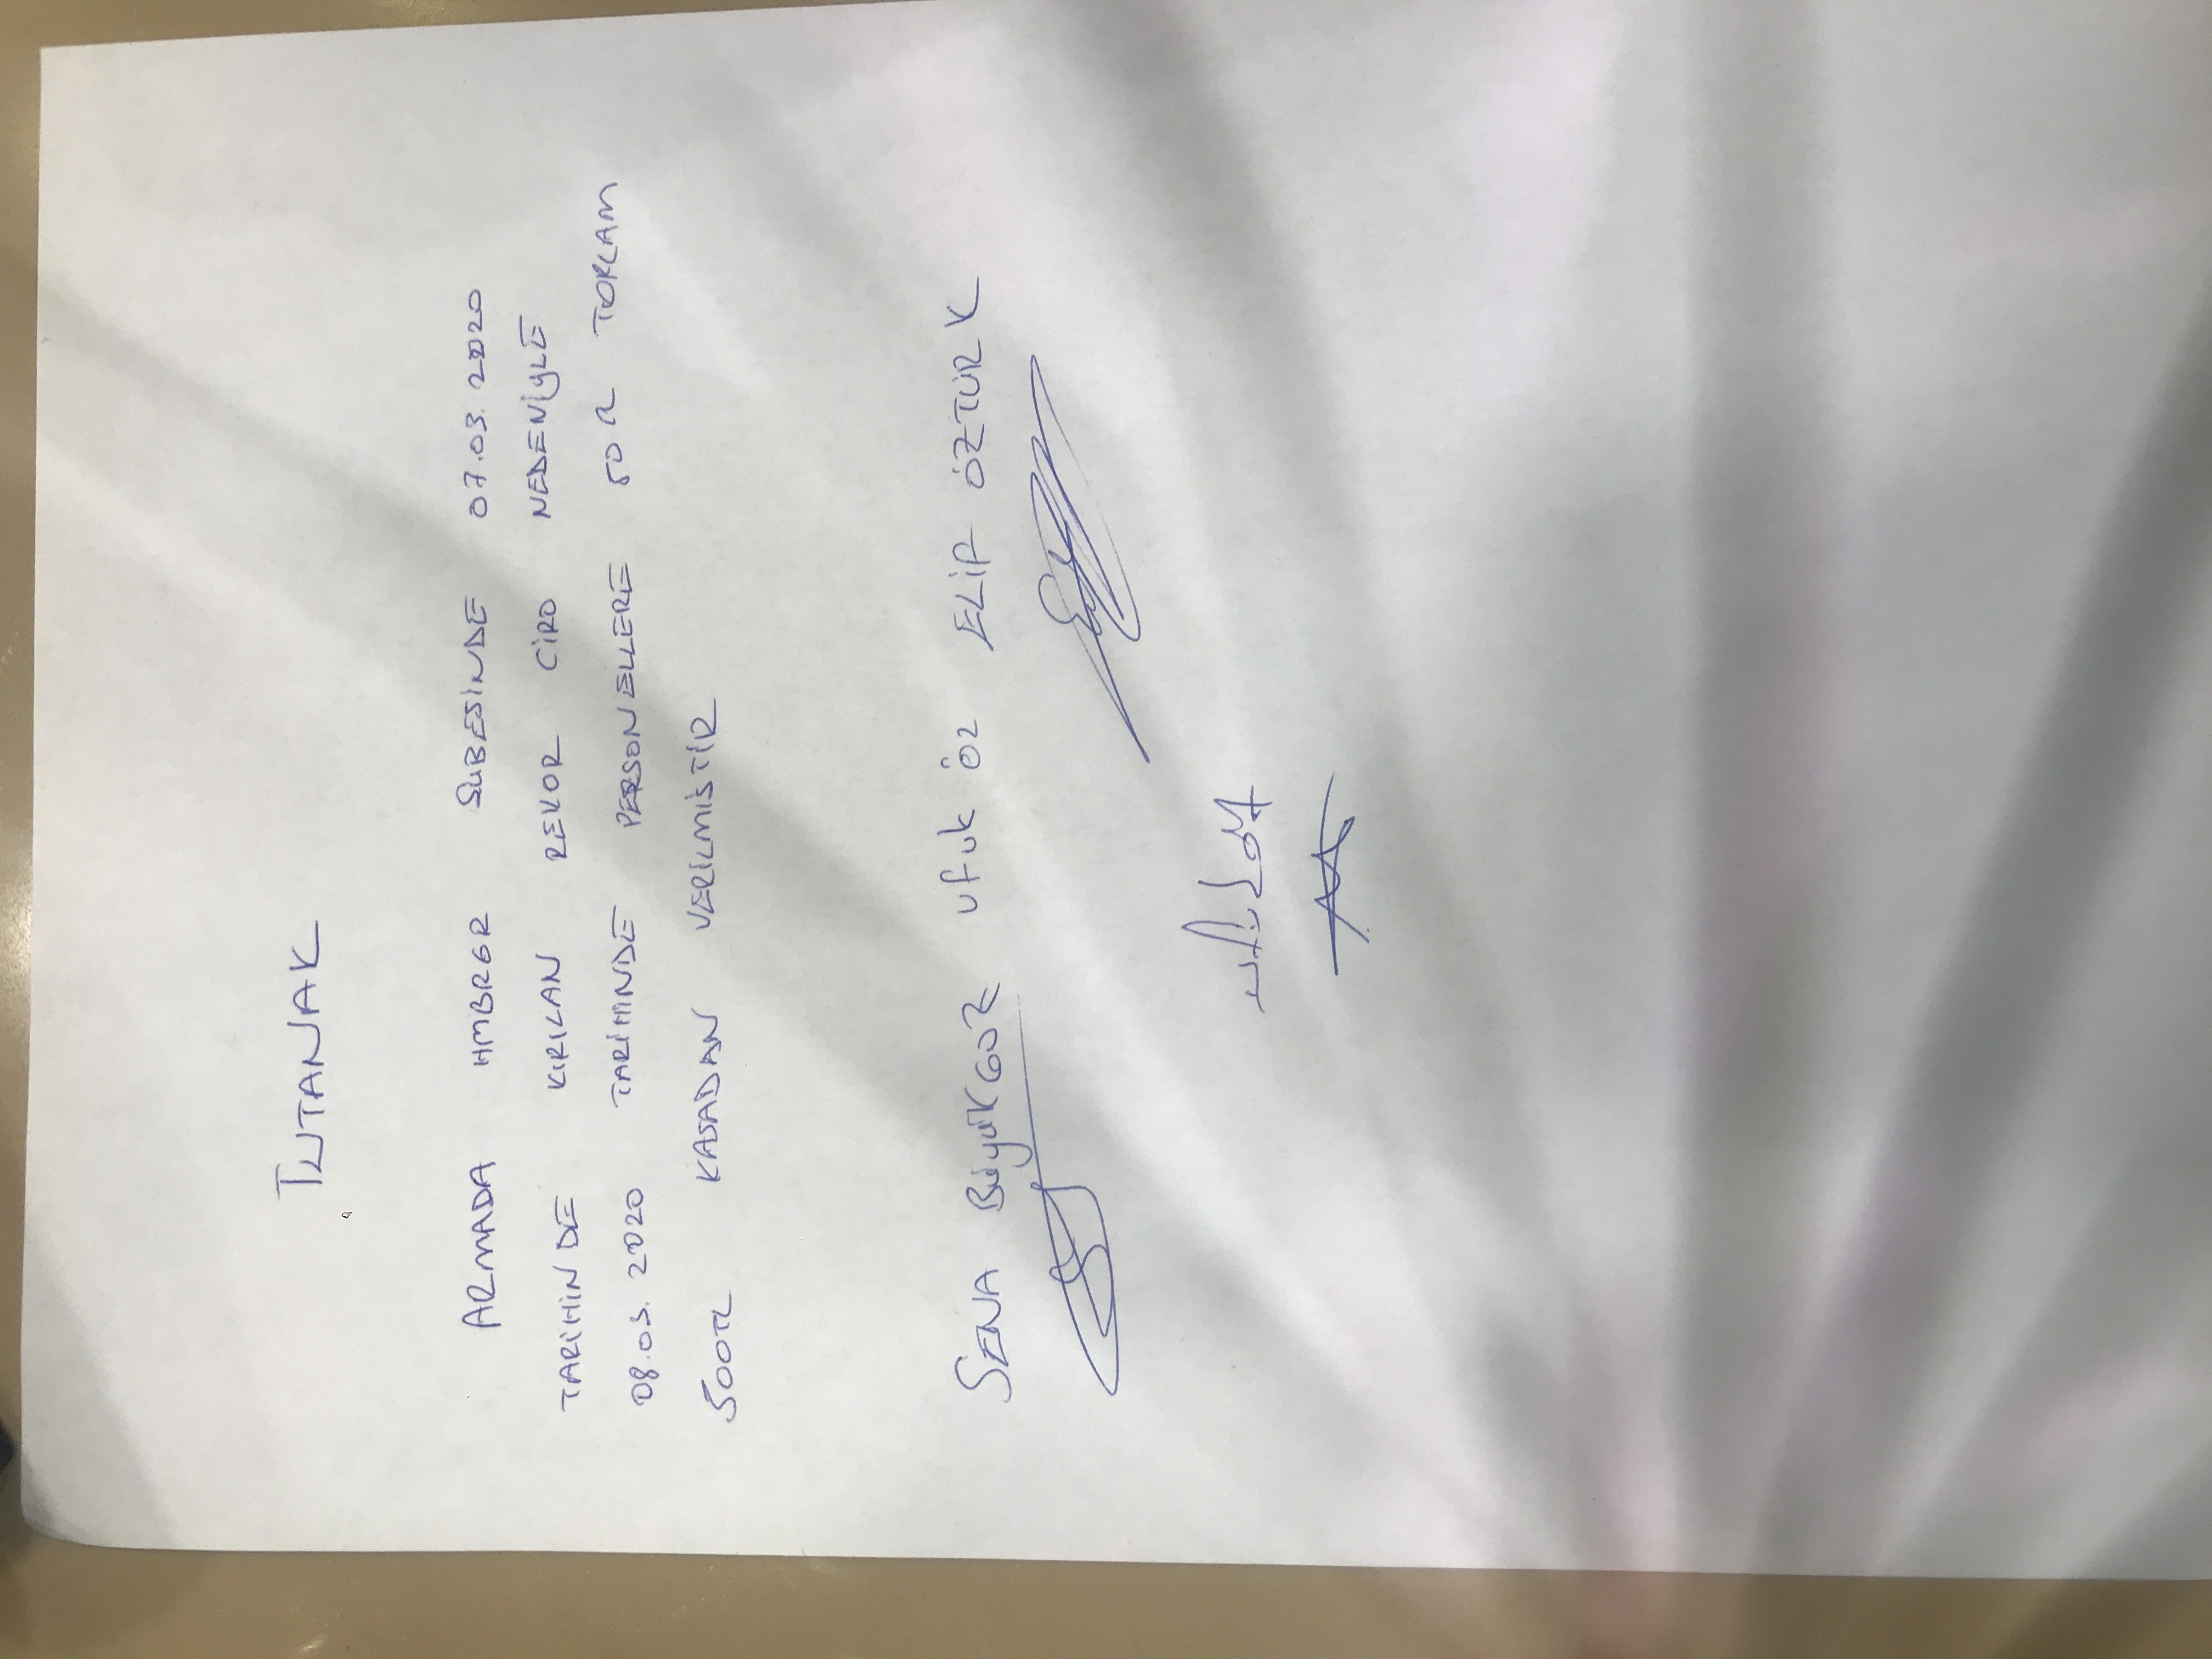 TUTANAK
ARMADA HMBRGR ŞUBESİNDE 07.03.2020
TARİHİNDE KIRILAN REKOR CİRO NEDENİYLE
08.03.2020 TARİHİNDE PERSONELLERE 50 TL TOPLAM
500TL KASADAN VERİLMİŞTİR
SENA BÜYÜKGÖZ ufuk öz ELİF ÖZTÜRK
ufuk öz